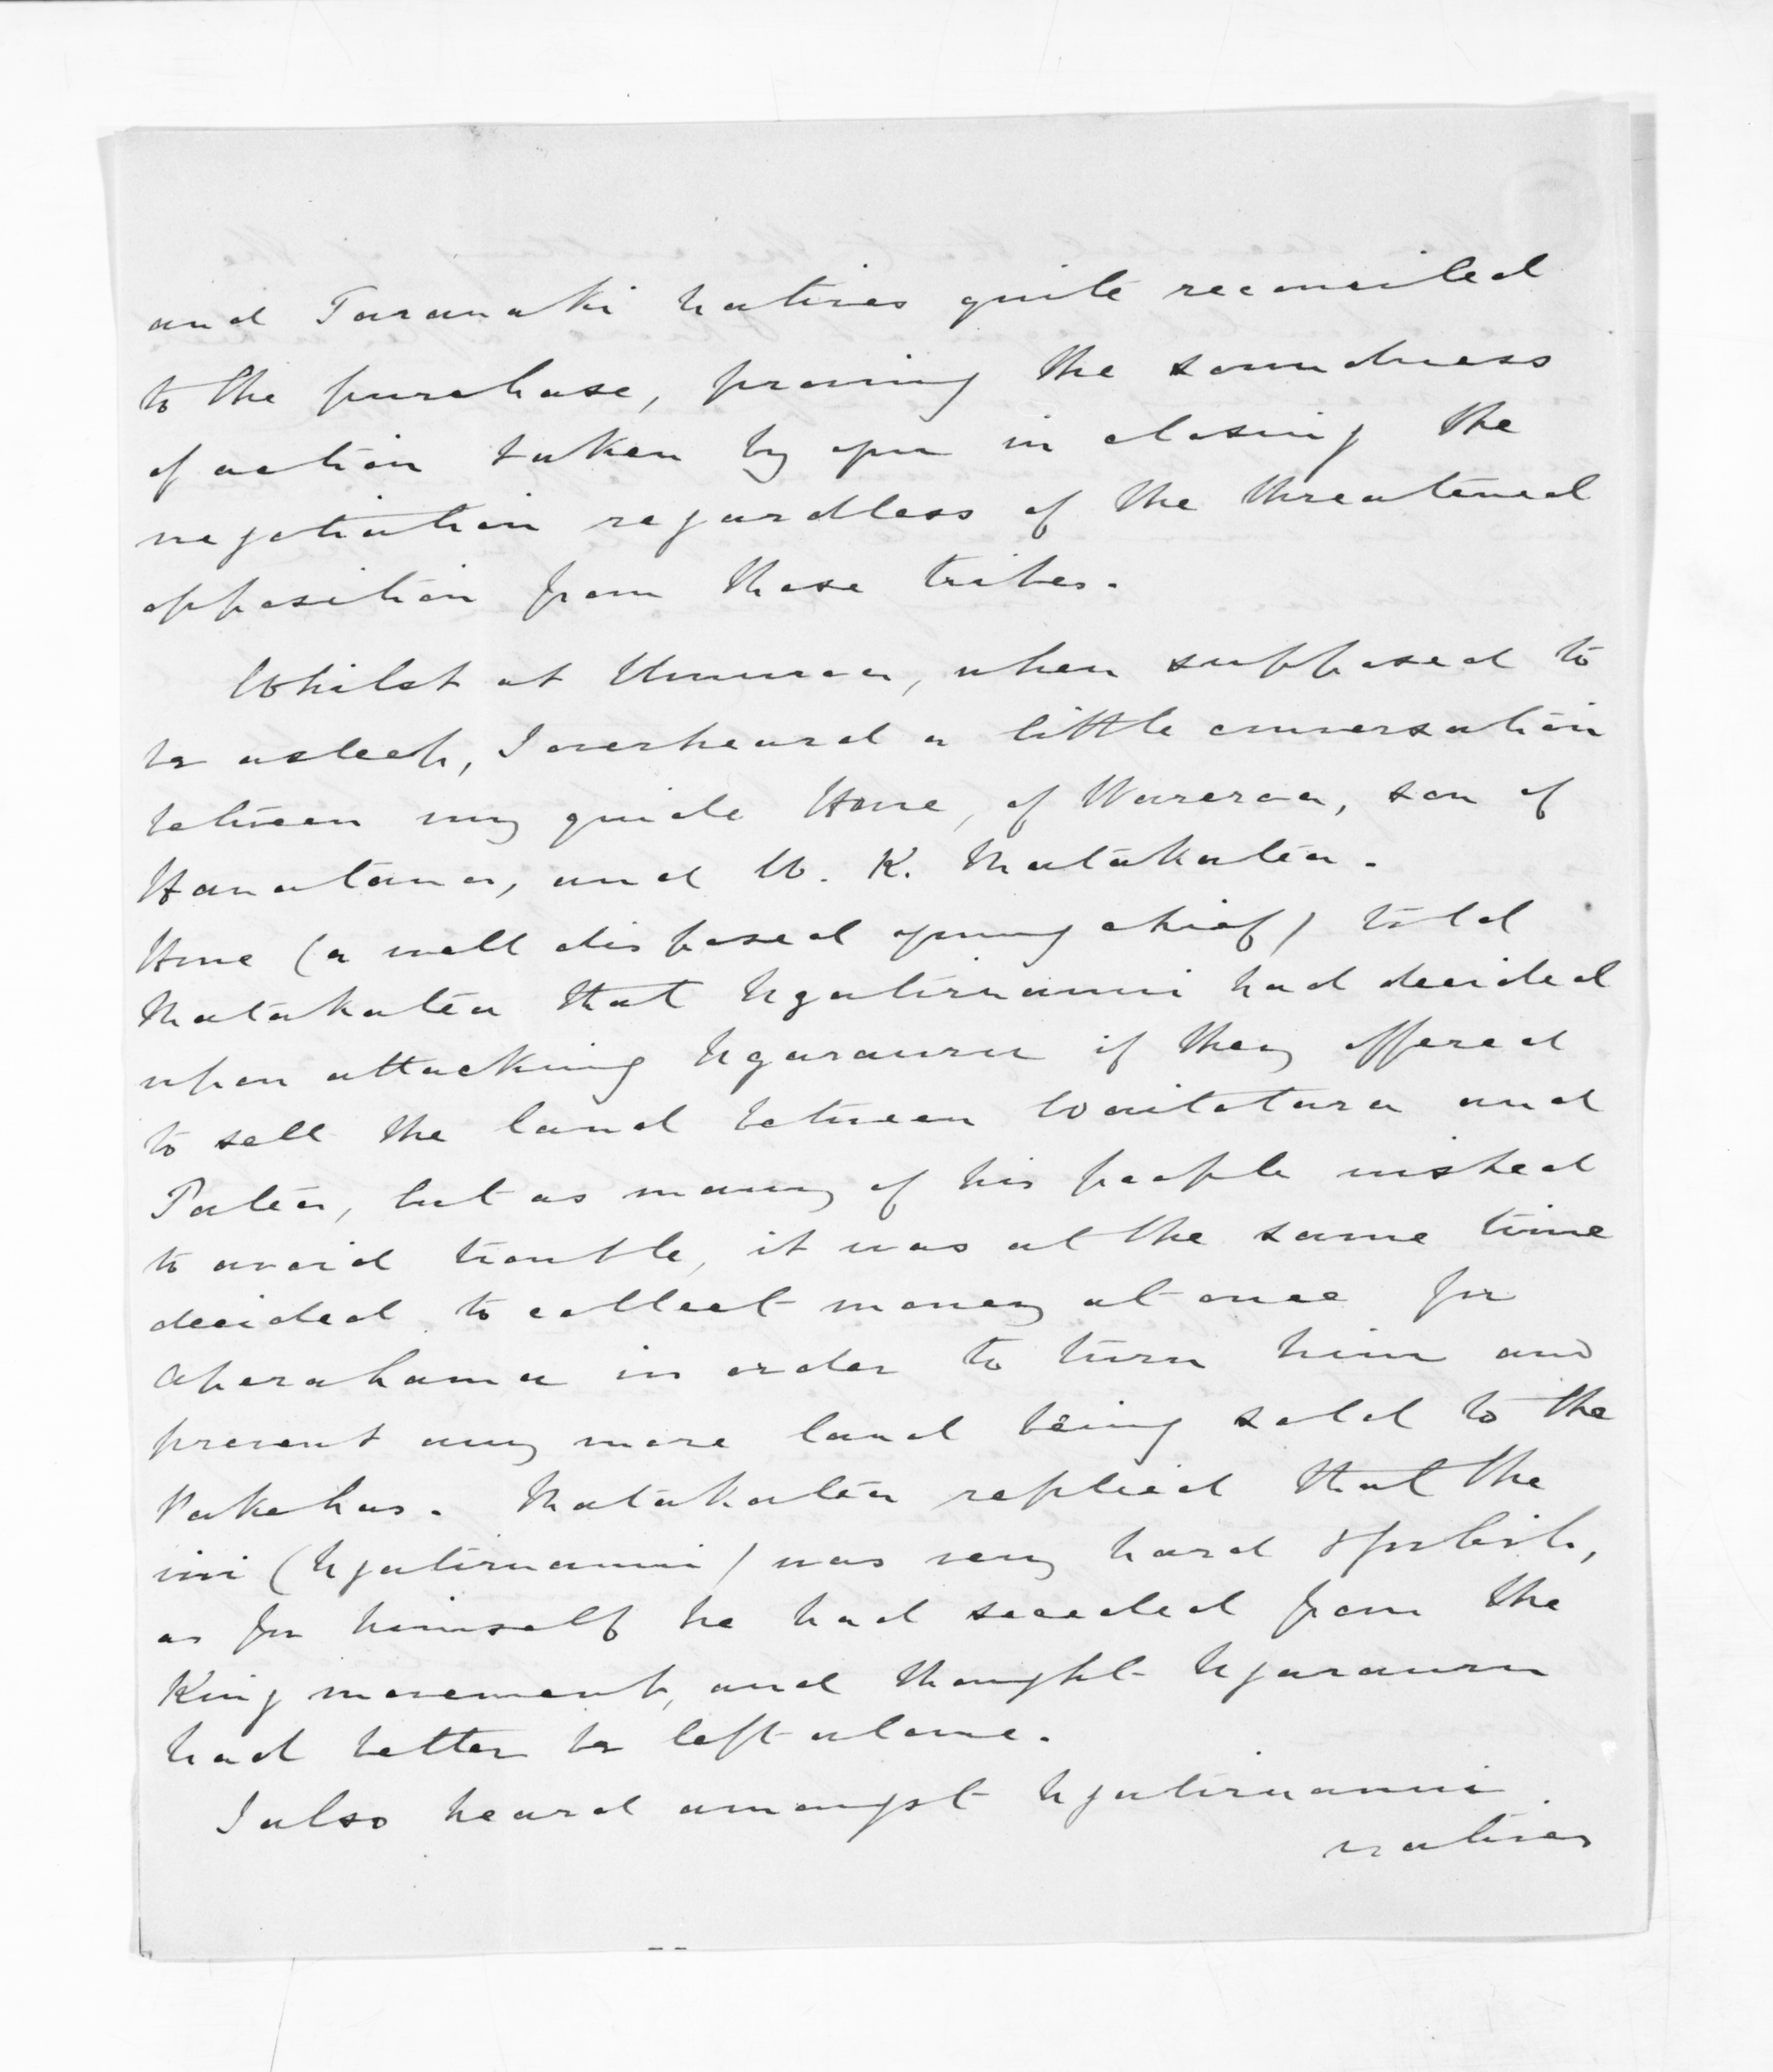 and Taranaki natives quite reconciled
to the purchase, proving the soundness
of action taken by you in closing the
negotiation regardless of the threatened
opposition from those tribes.
Whilst at Umuroa, when supposed to
be asleep, I overheard a little conversation
between my guide Hone, of Wareroa, son of
Hanatana, and W. K. Matakatea.
Hone (a well disposed young chief) told
Matakatea that Ngatiruanui had decided
upon attacking Ngarauru if they offered
to sell the land between Waitotara and
Patea, but as many of his people wished
to avoid trouble, it was at the same time
decided to collect money at once for
Aperahama in order to turn him and
prevent any more land being sold to the
Pakehas. Matakatea replied that the
iwi (Ngatiruanui) was very hard &
as for himself he had seceded from the
King movement, and thought Ngarauru
had better be left alone.
I also heard amongst Ngatiruanui
natives